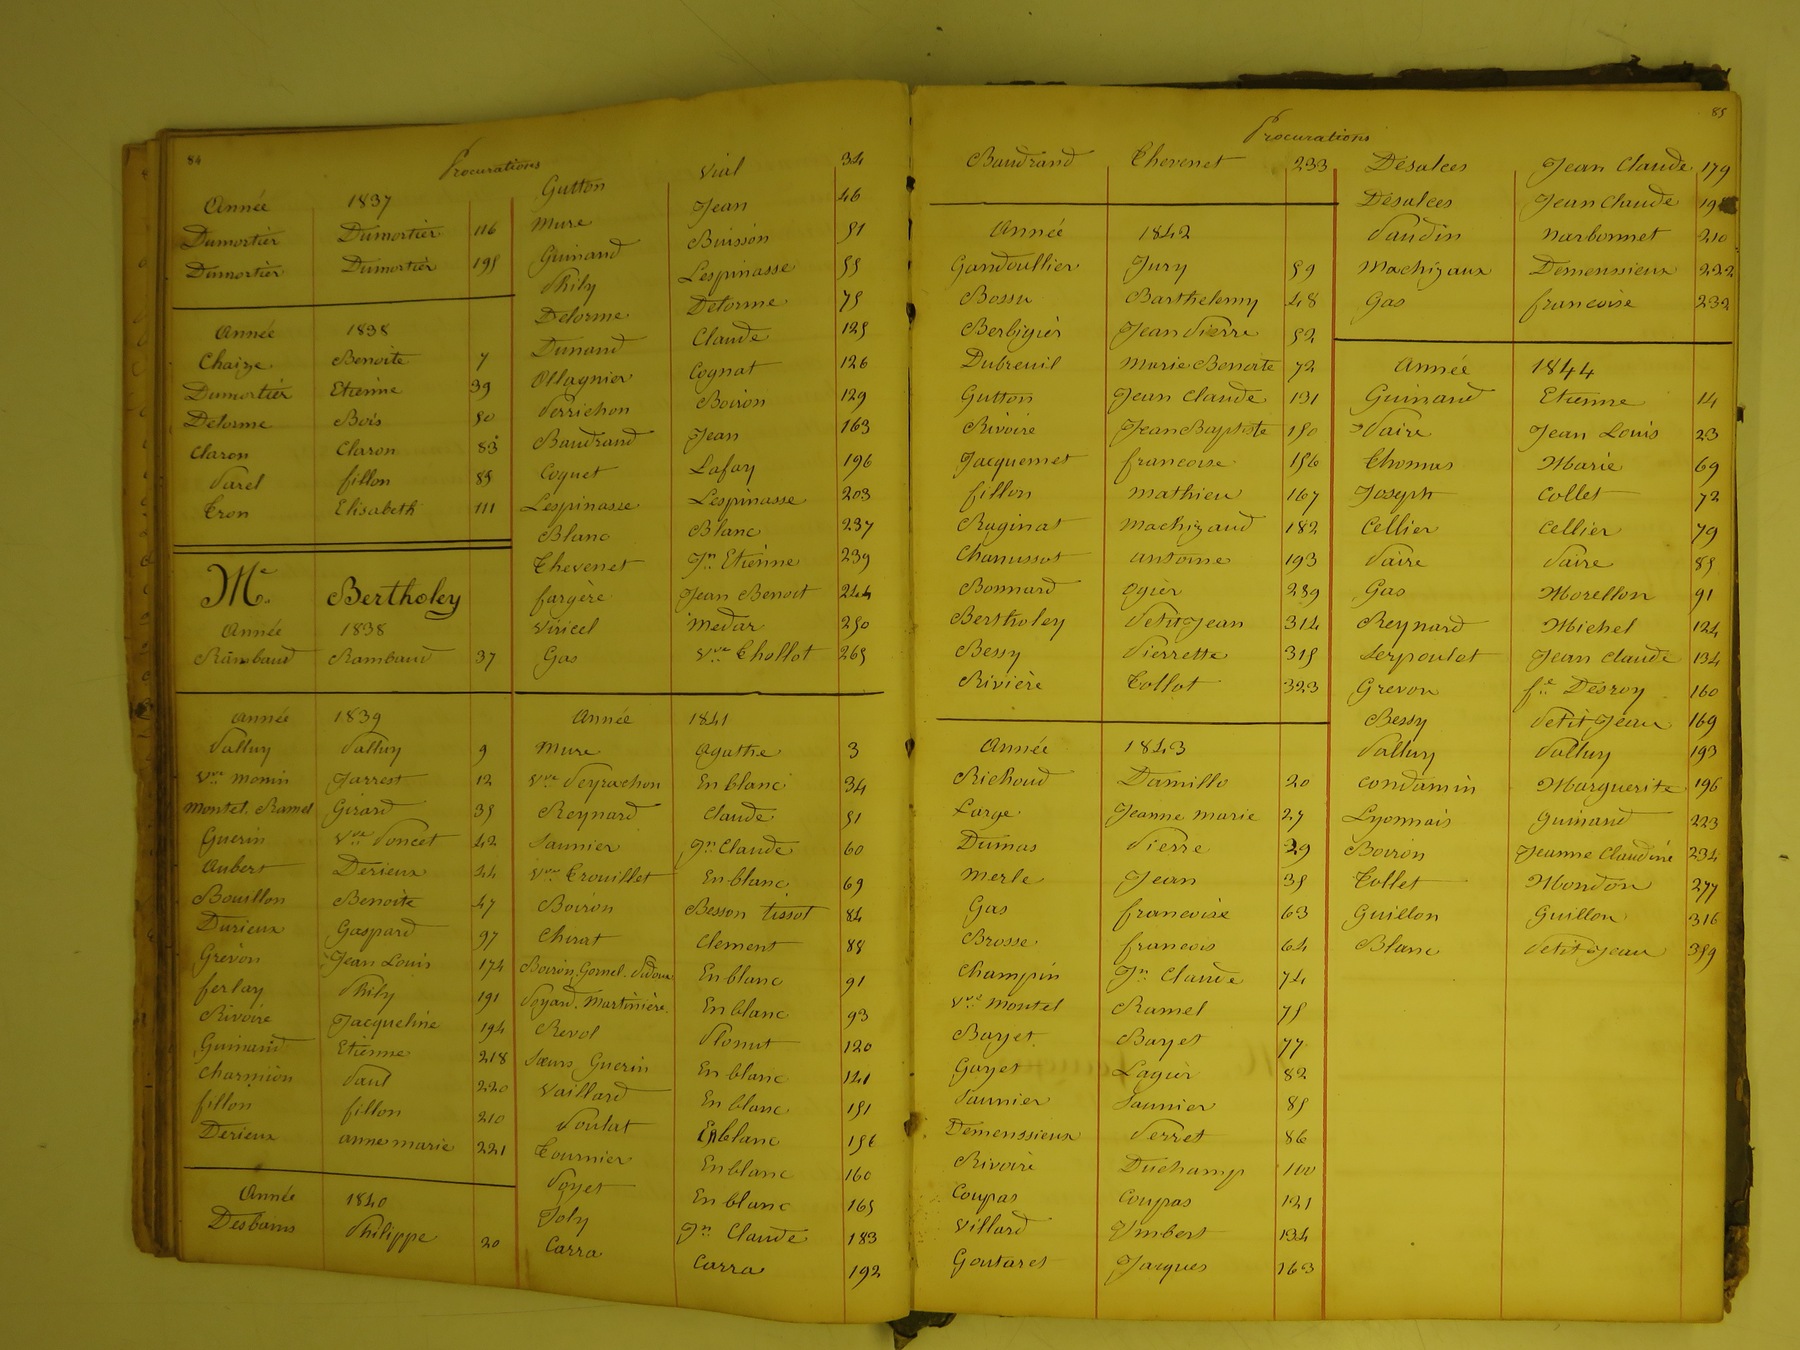 84
Procurations
Année 1837
Dumortier Dumortier 116
Dumortier Dumortier 195
Année 1838
Chaize Benoite 7
Dumortier Etienne 39
Delorme Bois 50
Claron Claron 83
Parel fillon 85
Tron Elisabeth 111
Me. Bertholey
Année 1838
Rambaud Rambaud 37
Année 1839
Palluy Palluy 9
Vve Momin Jarrest 12
Montel. Ramel Girard 35
Guerin Vve Poncet 42
Aubert Dérieux 44
Bouillon Benoite 47
Durieux Gaspard 97
Grévon Jean Louis 174
ferlay Phily 191
Rivoire Jacqueline 194
Guinand Etienne 218
Charmion Paul 220
fillon fillon 210
Derieux anne marie 221
Année 1840
Desbains Philippe 20
Gutton Vial 34
Mure Jean 46
Guinand Buisson 51
Phily Lespinasse 55
Delorme Delorme 75
Dunand Claude 125
Ollagnier Cognat 126
Perrichon Boiron 129
Baudrand Jean 163
Coquet Lafay 196
Lespinasse Lespinasse 203
Blanc Blanc 237
Thevenet Jn. Etienne 239
fargère Jean Benoit 244
Viricel Medar 250
Gas Vve Chollot 265
Année 1841
Mure Agathe 3
Vve Peyrachon En blanc 34
Reynard Claude 51
Saunier Jn Claude 60
Vve Trouillet En blanc 69
Boiron Besson tissot 84
Chirat Clement 88
Boiron. Gornel. En blanc 91
Poyard. Martinière. En blanc 93
Revol Plonut 120
Sœurs Guerin En blanc 141
Vaillard En blanc 151
Poulat En blanc 156
Tournier En blanc 160
Poyet En blanc 165
Joly Jn Claude 183
Carra Carra 192
85
Procurations
Baudrand Thevenet 233
Année 1842
Gandoullier Jury 59
Bossu Barthelemy 48
Berbigier Jean Pierre 52
Dubreuil Marie Benoite 72
Gutton Jean Claude 131
Rivoire Jean Baptiste 150
Jacquemet francoise 156
fillon mathieu 167
Raginat machizaud 182
Chanussot antoine 193
Bonnard Ogier 239
Bertholey Petit Jean 314
Bessy Pierrette 315
Rivière Collot 323
Année 1843
Richoud Damillo 20
Large Jeanne marie 27
Dumas Pierre 29
Merle Jean 35
Gas francoise 63
Brosse francois 64
Champin Jn Claude 74
Vve Montel Ramel 75
Bayet Bayet 77
Gayet Lagier 82
Saunier Saunier 85
Demenssieux Perret 86
Rivoire Duchamp 100
Coupas Coupas 121
Villard Imbert 134
Goutaret Jacques 163
Désalces Jean Claude 179
Désalces Jean Claude
Paudin Narbonnet 210
Machizaux Demenssieux 222
Gas francoise 232
Année 1844
Guinand Etienne 14
Paire Jean Louis 23
Thomas Marie 69
Joseph Collet 72
Cellier Cellier 79
Paire Paire 85
Gas Morellon 91
Reynard Michel 124
Serpoulot Jean Claude 134
Grevon fe Desroy 160
Bessy Petit Jean 169
Palluy Palluy 193
Condamin Marguerite 196
Lyonnais Guinand 223
Boiron Jeanne Claudine 234
Collet Mondon 277
Guillon Guillon 316
Blanc Petit Jean 359